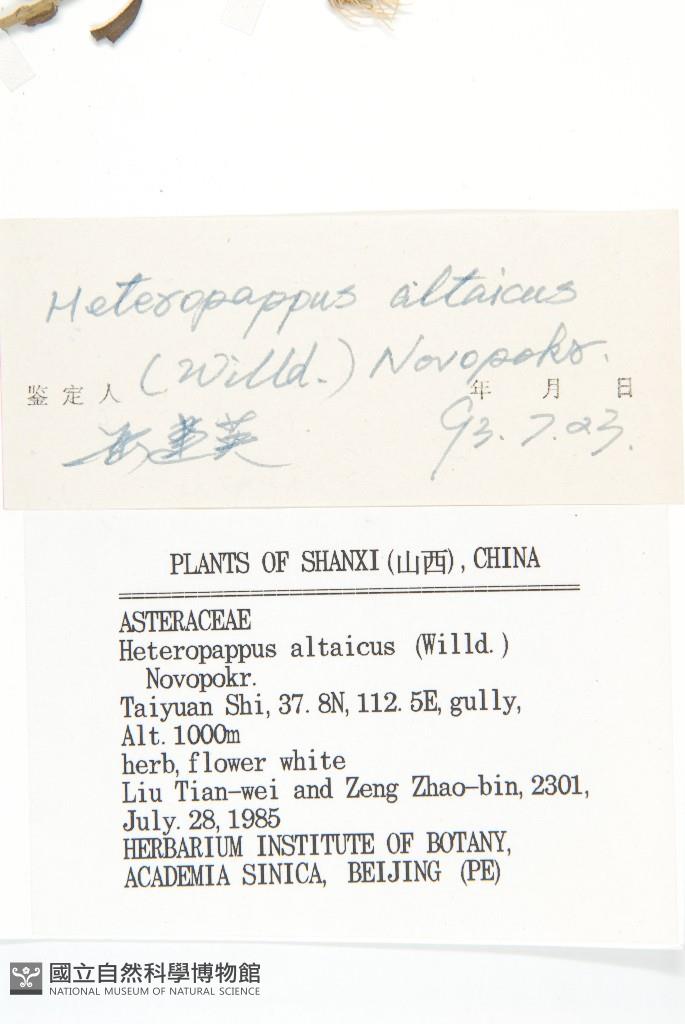 Heteropappus altaicus
(Willd.) Novopokr.
鉴定人 年 月 日
93.7.23.
PLANTS OF SHANXI(山西), CHINA
ASTERACEAE
Heteropappus altaicus (Willd.)
Novopokr.
Taiyuan Shi, 37.8N, 112.5E, gully,
Alt. 1000m
herb, flower white
Liu Tian-wei and Zeng Zhao-bin, 2301,
July. 28, 1985
HERBARIUM INSTITUTE OF BOTANY,
ACADEMIA SINICA, BEIJING (PE)
國立自然科學博物館
NATIONAL MUSEUM OF NATURAL SCIENCE